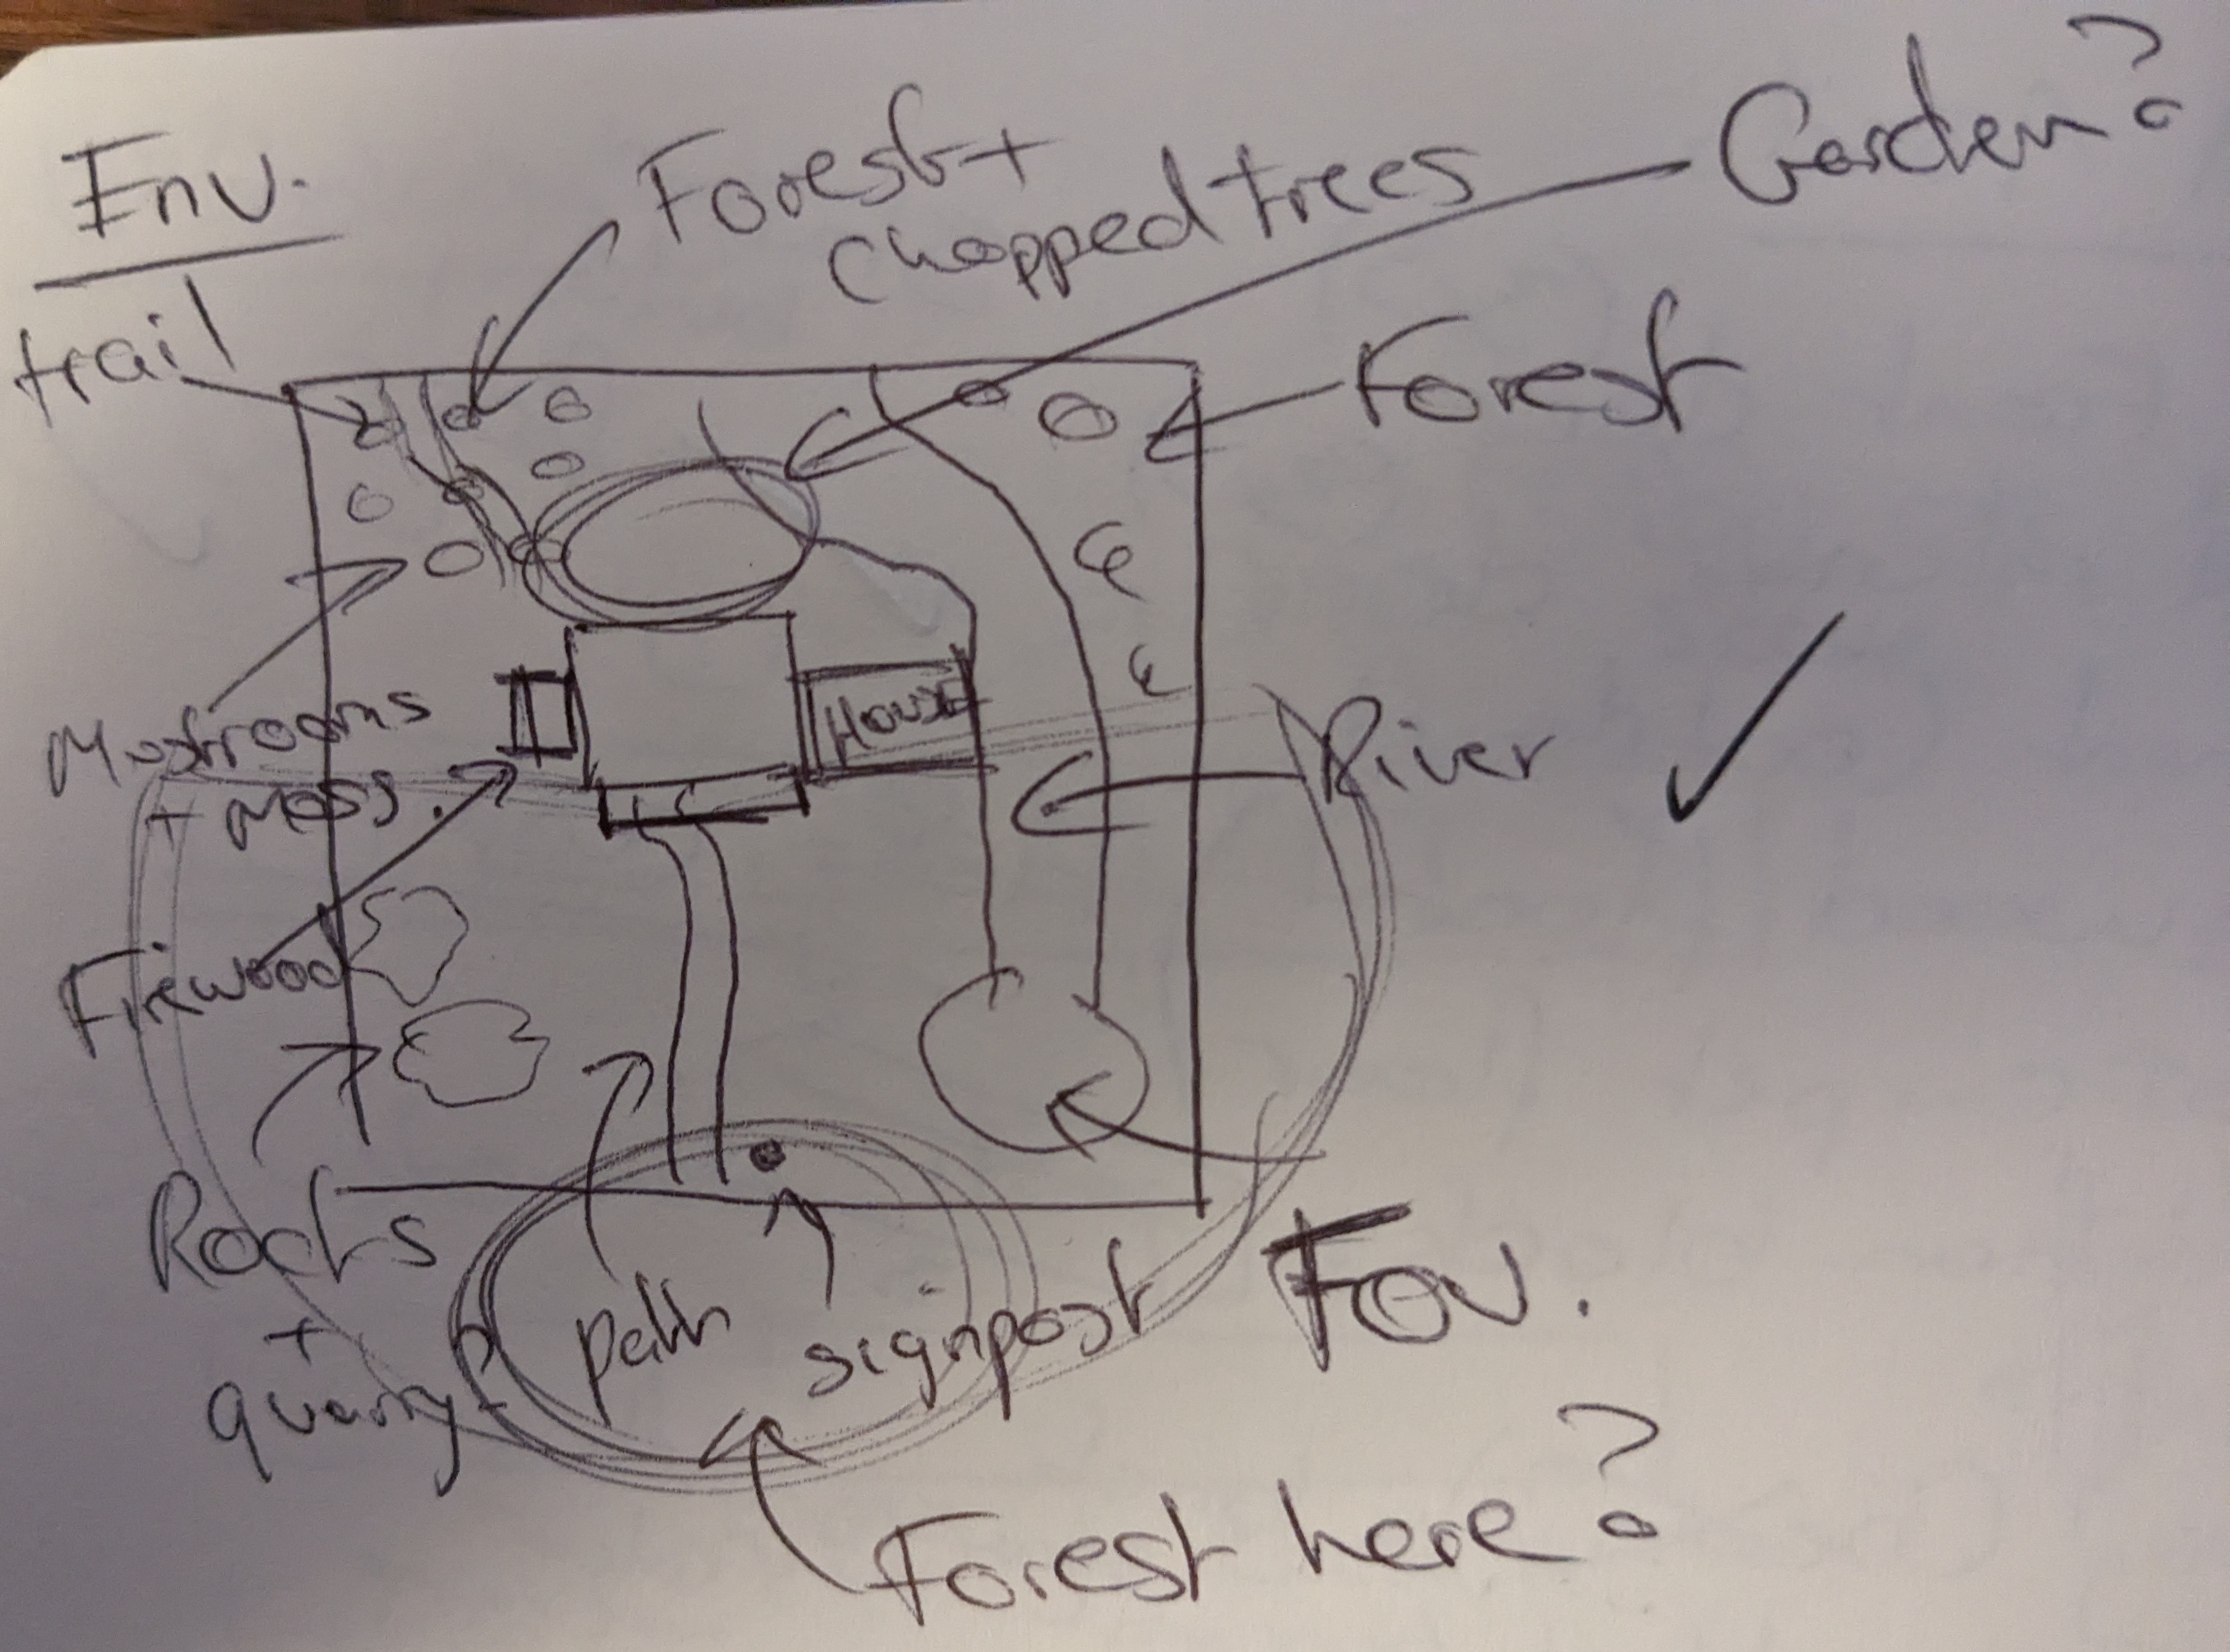 Env.
Forest +
chopped trees
Garden?
trail
Forest
House
Mushrooms
+ moss.
River
Firewood
Rocks
+
quarry
path
signpost
Fov.
Forest here?